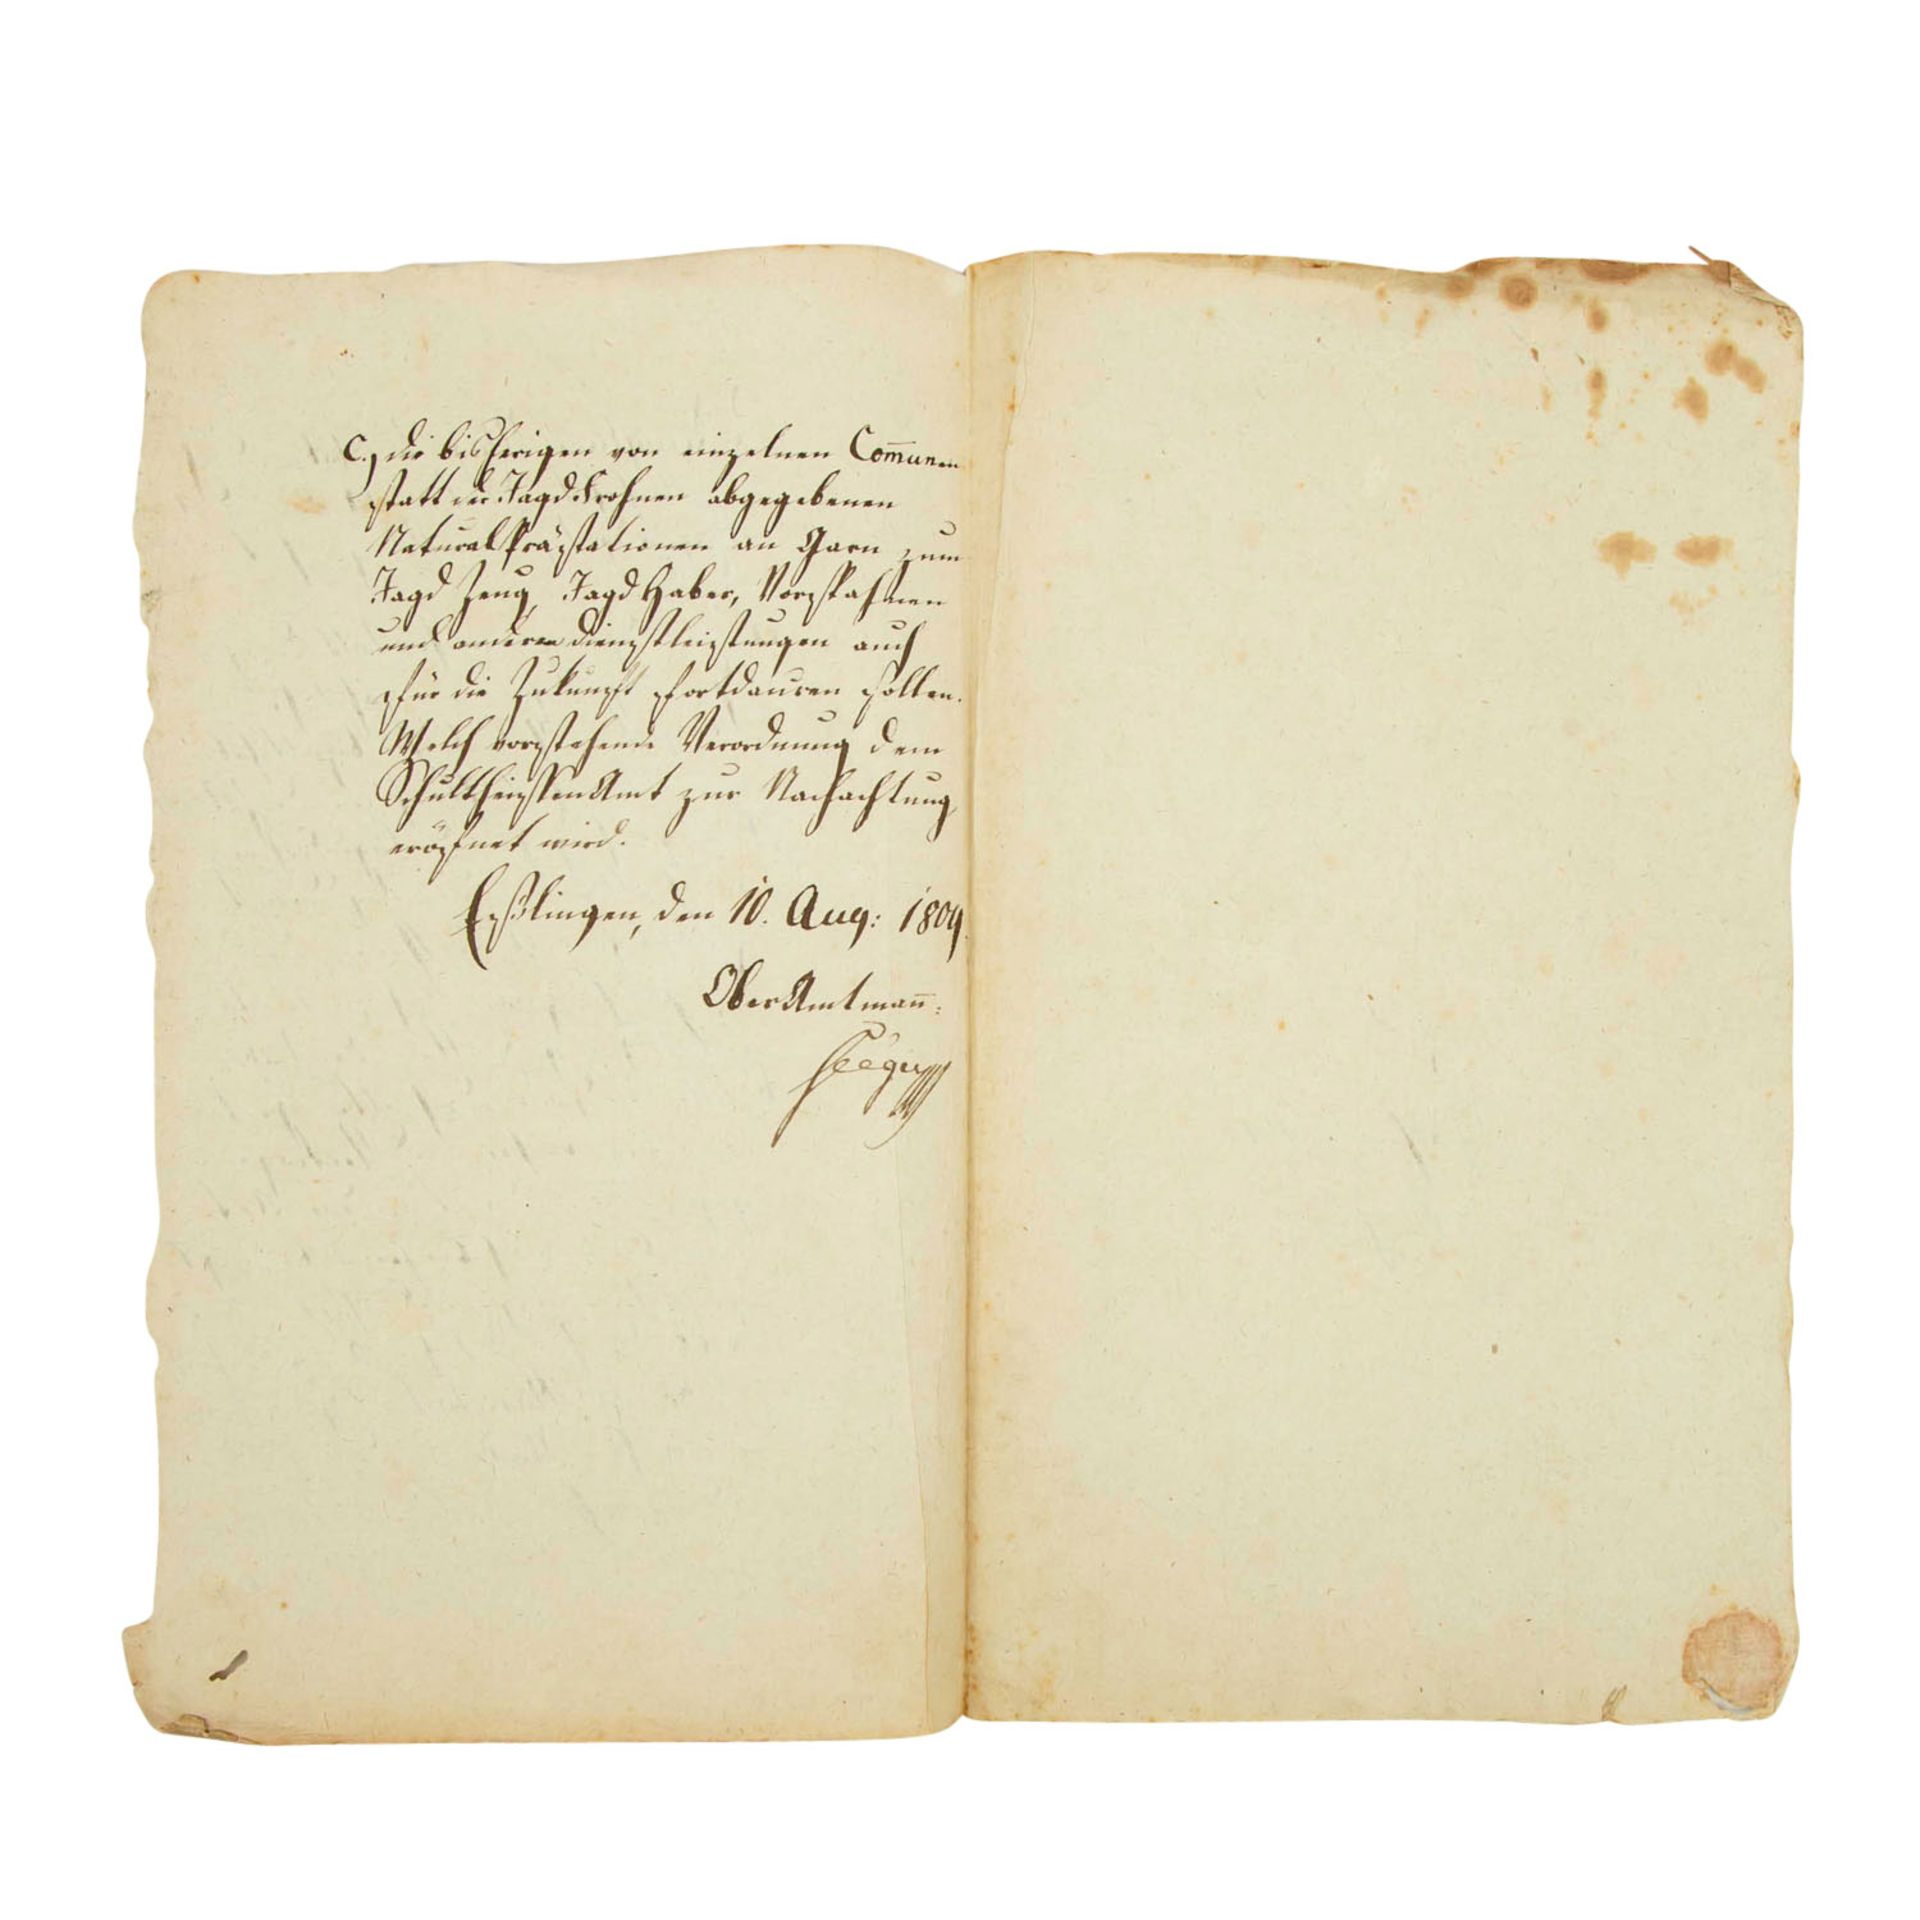 C.) die bisherigen von einzelnen Com̄unen
statt der Jagd Frohnen abgegebenen
Natural Prästationen an Garn zum
Jagd Zeug, Jagd Haber, Vorspahnen
und anderen Dienstleistungen auch
für die Zukunft fortdauren sollen.
Welch vorstehende Verordnung dem
Schultheissen Amt zur Nachachtung
eröfnet wird.
Eßlingen, den 10. Aug: 1809.
Ober Amtman̄:
Seeger